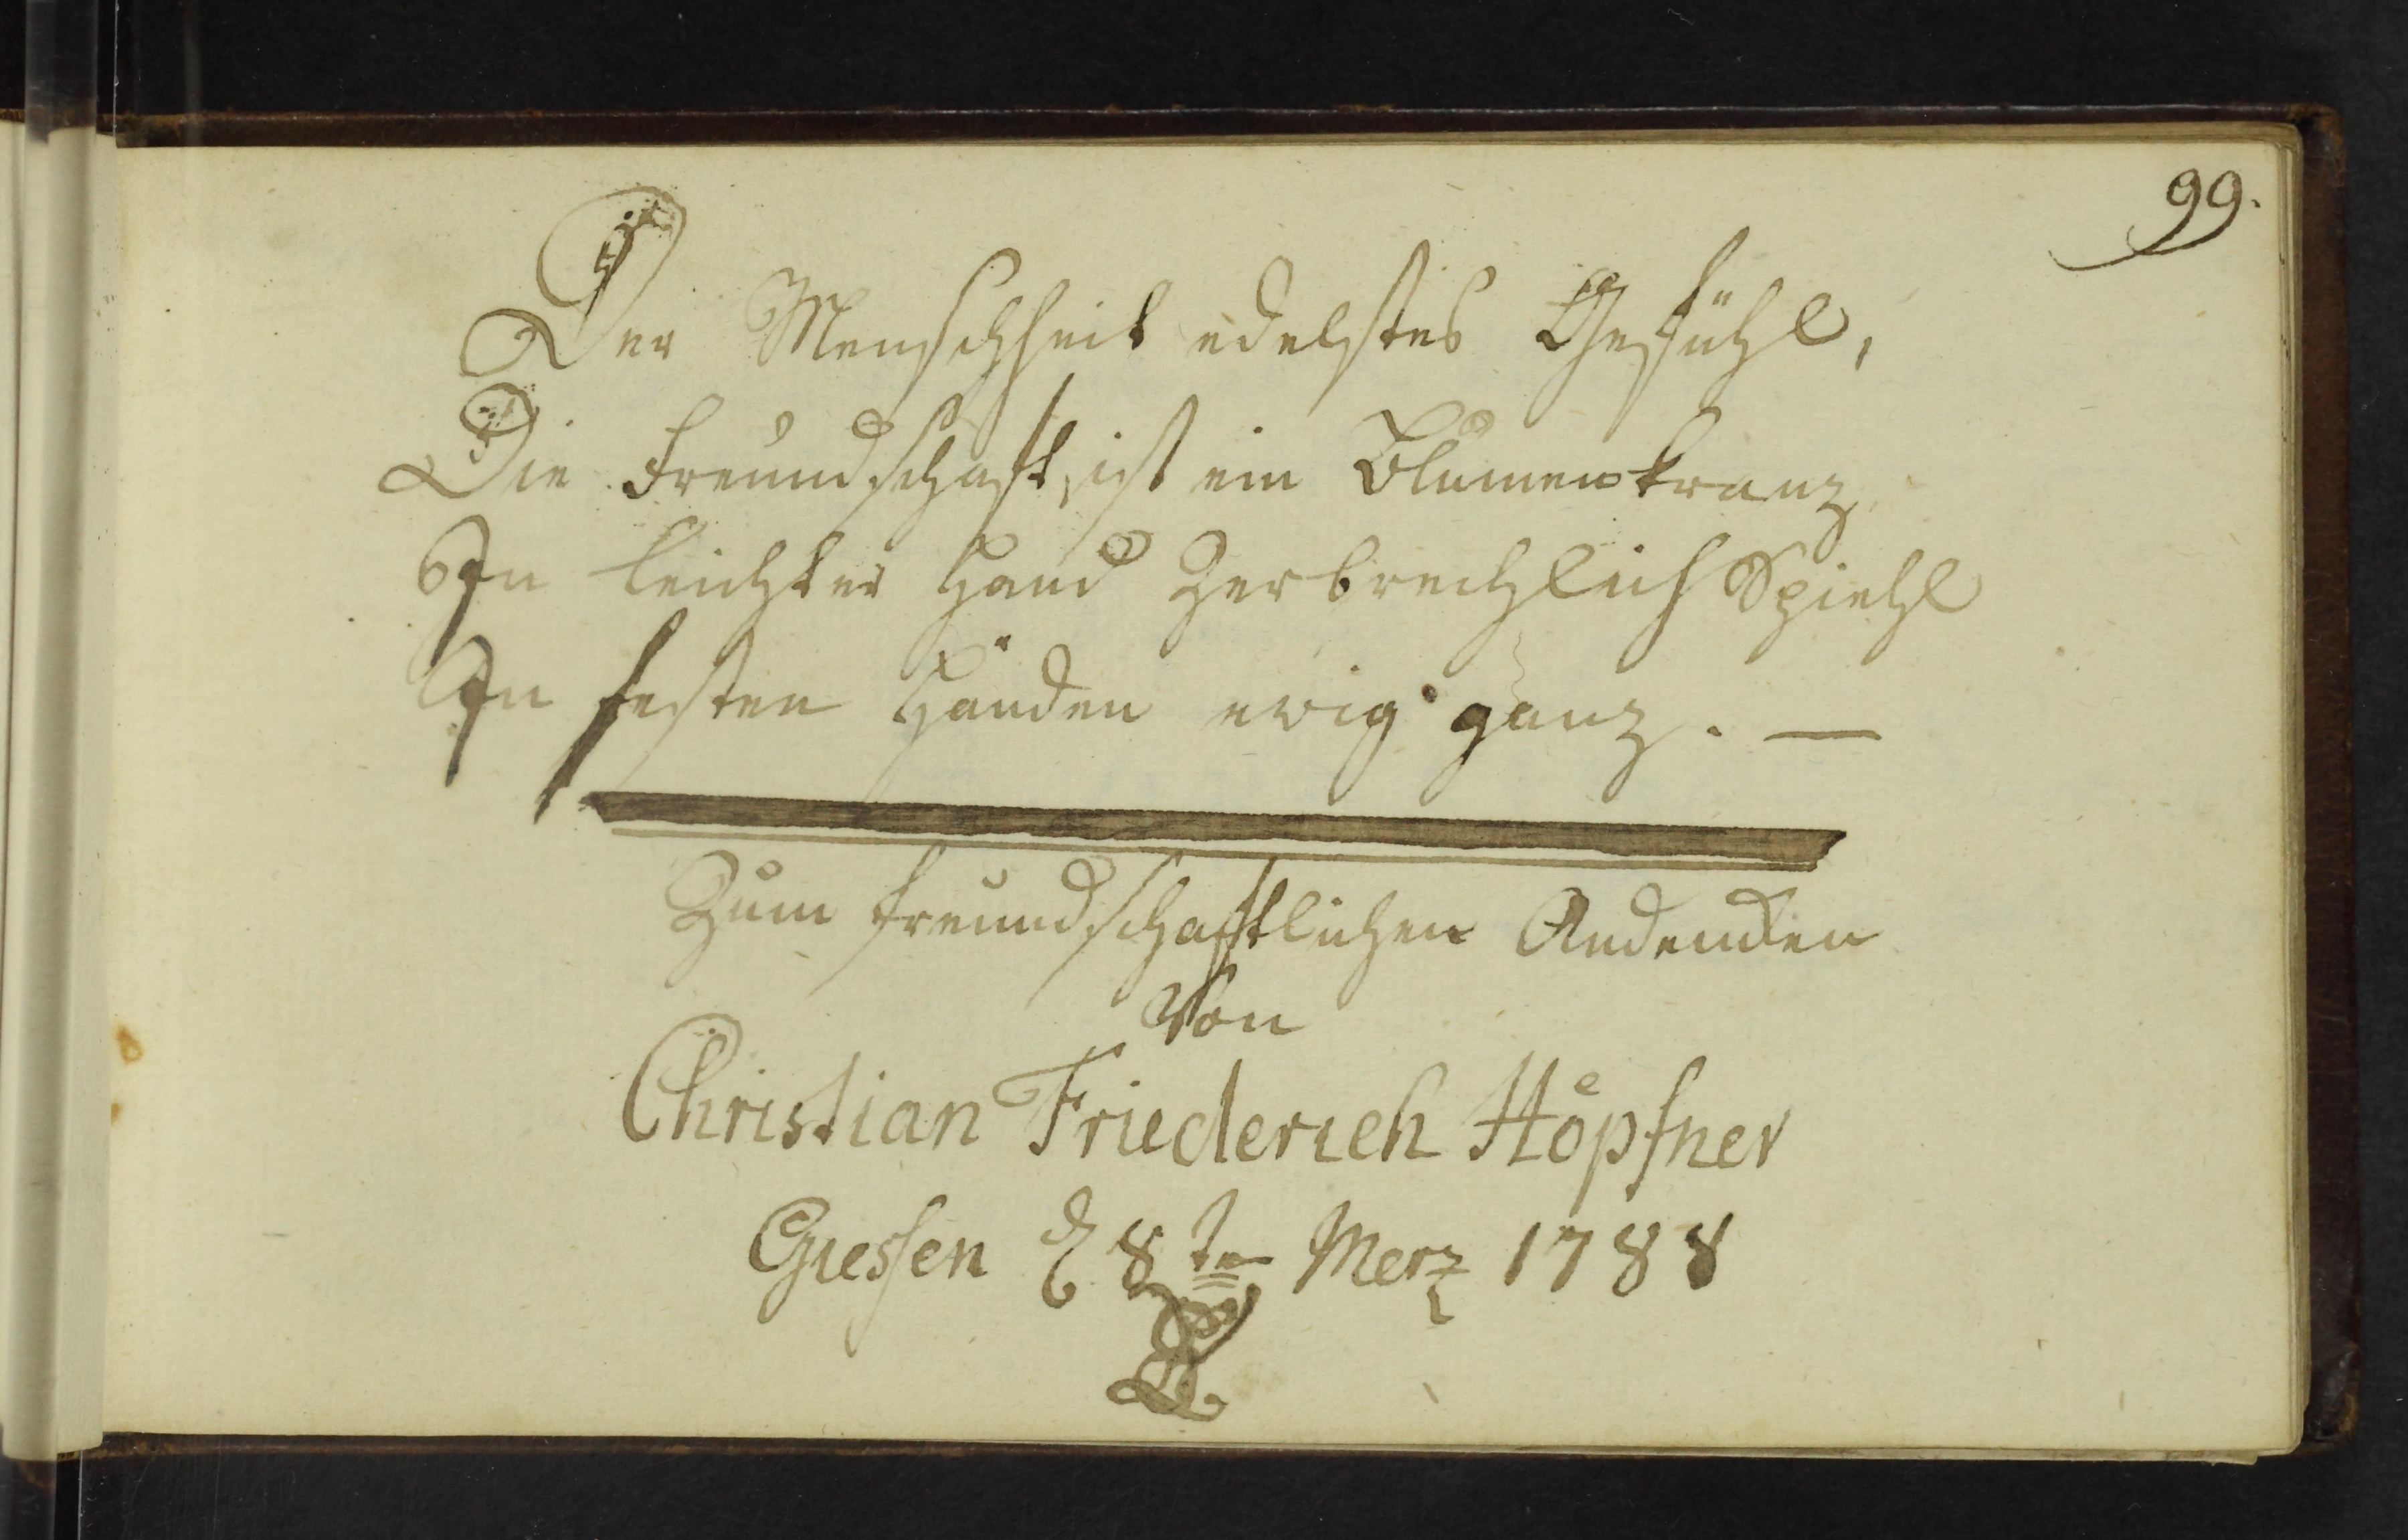 99.
Der Menschheit edelstes Gefühl,
Die Freundschaft, ist ein Blumenkranz
In leichter Hand Zerbrechlich Spiehl
In festen Händen ewig ganz. —
Zum freundschaftlichen Andencken
Von
Christian Friederich Höpfner
Giessen d 8ten Merz 1788